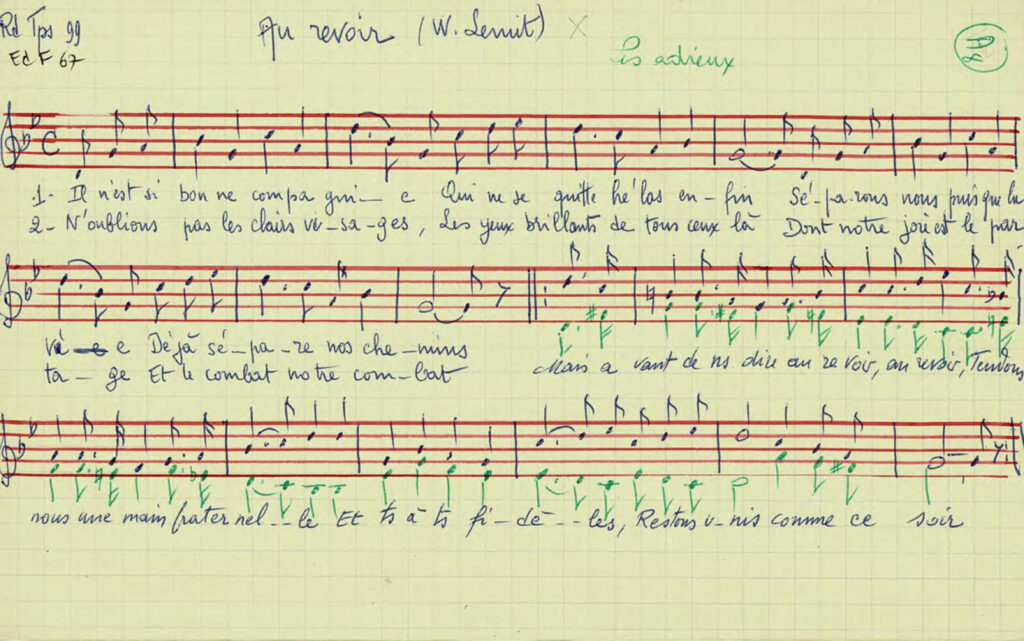 Rd Tps 99
Ed F 67
Au revoir (W. Lemit) X
Les adieux
A8
1- Il n'est si bon ne compa gni - e Qui ne se quitte hé las en - fin Sé - pa - rons nous puis que la
2- N'oublions pas les clairs vi - sa - ges, Les yeux brillants de tous ceux là Dont notre joie est le par
vi - e Déjà sé - pa - re nos che - mins
ta - ge Et le combat notre com - bat
Mais a vant de ns dire au re voir, au revoir, Tendons
nous une main frater nel - - le Et ts à ts fi - dè - - les, Restons u - nis comme ce soir